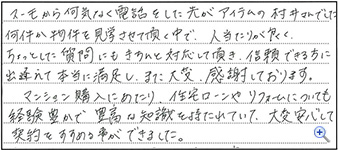 スーモから何気なく電話をした先がアイテムの村井さんでした
何件か物件を見学させて頂く中で、人当たりが良く、
ちょっとした質問にもきちんと対応して頂き、信頼できる方に
出逢えて本当に満足し、また大変、感謝しております。
マンション購入にあたり、住宅ローンやリフォームについても
経験豊かで豊富な知識を持たれていて、大変安心して
契約をすすめる事ができました。